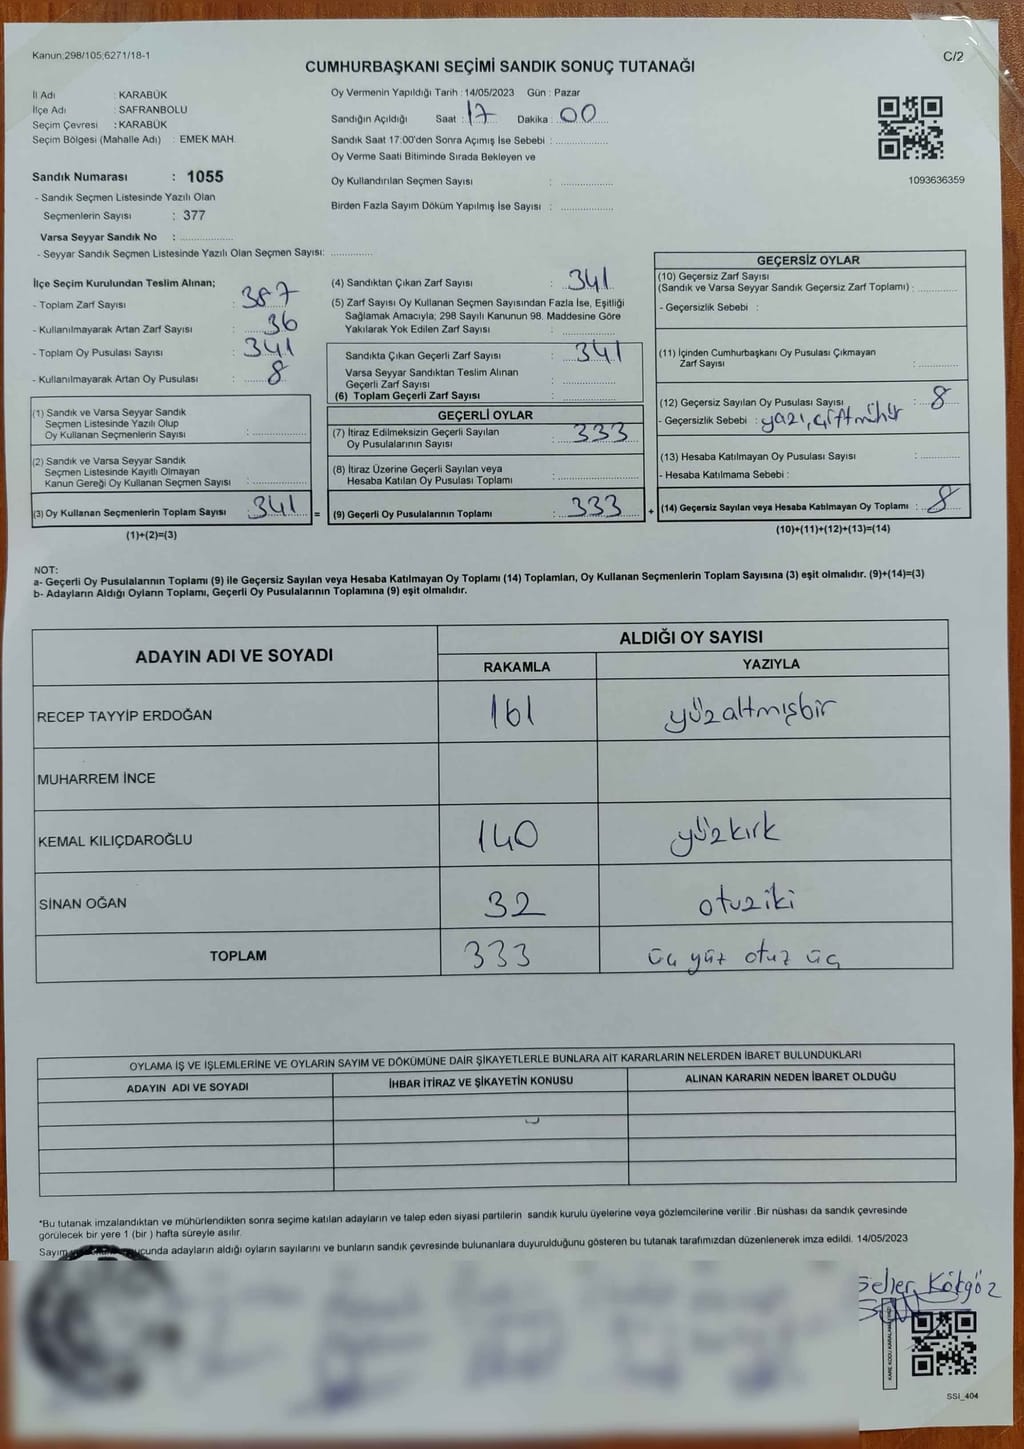 Kanun;298/105;6271/18-1
C/2
CUMHURBAŞKANI SEÇİMİ SANDIK SONUÇ TUTANAĞI
İl Adı : KARABÜK
İlçe Adı : SAFRANBOLU
Seçim Çevresi : KARABÜK
Seçim Bölgesi (Mahalle Adı) : EMEK MAH.
Sandık Numarası : 1055
- Sandık Seçmen Listesinde Yazılı Olan
Seçmenlerin Sayısı : 377
Varsa Seyyar Sandık No : ..................
- Seyyar Sandık Seçmen Listesinde Yazılı Olan Seçmen Sayısı: ..............
Oy Vermenin Yapıldığı Tarih : 14/05/2023 Gün : Pazar
Sandığın Açıldığı Saat : 17 Dakika : 00
Sandık Saat 17:00'den Sonra Açımış İse Sebebi : ..................
Oy Verme Saati Bitiminde Sırada Bekleyen ve
Oy Kullandırılan Seçmen Sayısı : ..................
Birden Fazla Sayım Döküm Yapılmış İse Sayısı : ..................
1093636359
İlçe Seçim Kurulundan Teslim Alınan;
- Toplam Zarf Sayısı : 387
- Kullanılmayarak Artan Zarf Sayısı : 36
- Toplam Oy Pusulası Sayısı : 341
- Kullanılmayarak Artan Oy Pusulası : 8
(1) Sandık ve Varsa Seyyar Sandık
Seçmen Listesinde Yazılı Olup
Oy Kullanan Seçmenlerin Sayısı : ..................
(2) Sandık ve Varsa Seyyar Sandık
Seçmen Listesinde Kayıtlı Olmayan
Kanun Gereği Oy Kullanan Seçmen Sayısı : ..................
(3) Oy Kullanan Seçmenlerin Toplam Sayısı 341 =
(1)+(2)=(3)
(4) Sandıktan Çıkan Zarf Sayısı : 341
(5) Zarf Sayısı Oy Kullanan Seçmen Sayısından Fazla İse, Eşitliği
Sağlamak Amacıyla; 298 Sayılı Kanunun 98. Maddesine Göre
Yakılarak Yok Edilen Zarf Sayısı : ..................
Sandıkta Çıkan Geçerli Zarf Sayısı : 341
Varsa Seyyar Sandıktan Teslim Alınan
Geçerli Zarf Sayısı : ..................
(6) Toplam Geçerli Zarf Sayısı : ..................
GEÇERLİ OYLAR
(7) İtiraz Edilmeksizin Geçerli Sayılan : 333
Oy Pusulalarının Sayısı
(8) İtiraz Üzerine Geçerli Sayılan veya
Hesaba Katılan Oy Pusulası Toplamı : ..................
(9) Geçerli Oy Pusulalarının Toplamı : 333 +
GEÇERSİZ OYLAR
(10) Geçersiz Zarf Sayısı
(Sandık ve Varsa Seyyar Sandık Geçersiz Zarf Toplamı) : ............
- Geçersizlik Sebebi :
(11) İçinden Cumhurbaşkanı Oy Pusulası Çıkmayan
Zarf Sayısı : ............
(12) Geçersiz Sayılan Oy Pusulası Sayısı : 8
- Geçersizlik Sebebi : yazı, çift mühür
(13) Hesaba Katılmayan Oy Pusulası Sayısı : ............
- Hesaba Katılmama Sebebi :
(14) Geçersiz Sayılan veya Hesaba Katılmayan Oy Toplamı : 8
(10)+(11)+(12)+(13)=(14)
NOT:
a- Geçerli Oy Pusulalarının Toplamı (9) ile Geçersiz Sayılan veya Hesaba Katılmayan Oy Toplamı (14) Toplamları, Oy Kullanan Seçmenlerin Toplam Sayısına (3) eşit olmalıdır. (9)+(14)=(3)
b- Adayların Aldığı Oyların Toplamı, Geçerli Oy Pusulalarının Toplamına (9) eşit olmalıdır.
ADAYIN ADI VE SOYADI
ALDIĞI OY SAYISI
RAKAMLA YAZIYLA
RECEP TAYYİP ERDOĞAN 161 yüzaltmışbir
MUHARREM İNCE
KEMAL KILIÇDAROĞLU 140 yüzkırk
SİNAN OĞAN 32 otuziki
TOPLAM 333 üç yüz otuz üç
OYLAMA İŞ VE İŞLEMLERİNE VE OYLARIN SAYIM VE DÖKÜMÜNE DAİR ŞİKAYETLERLE BUNLARA AİT KARARLARIN NELERDEN İBARET BULUNDUKLARI
ADAYIN ADI VE SOYADI İHBAR İTİRAZ VE ŞİKAYETİN KONUSU ALINAN KARARIN NEDEN İBARET OLDUĞU
*Bu tutanak imzalandıktan ve mühürlendikten sonra seçime katılan adayların ve talep eden siyasi partilerin sandık kurulu üyelerine veya gözlemcilerine verilir .Bir nüshası da sandık çevresinde
görülecek bir yere 1 (bir ) hafta süreyle asılır.
Sayım ucunda adayların aldığı oyların sayılarını ve bunların sandık çevresinde bulunanlara duyurulduğunu gösteren bu tutanak tarafımızdan düzenlenerek imza edildi. 14/05/2023
Seher Kökgöz
KARE KODU KARALAMAYINIZ
SSI_404